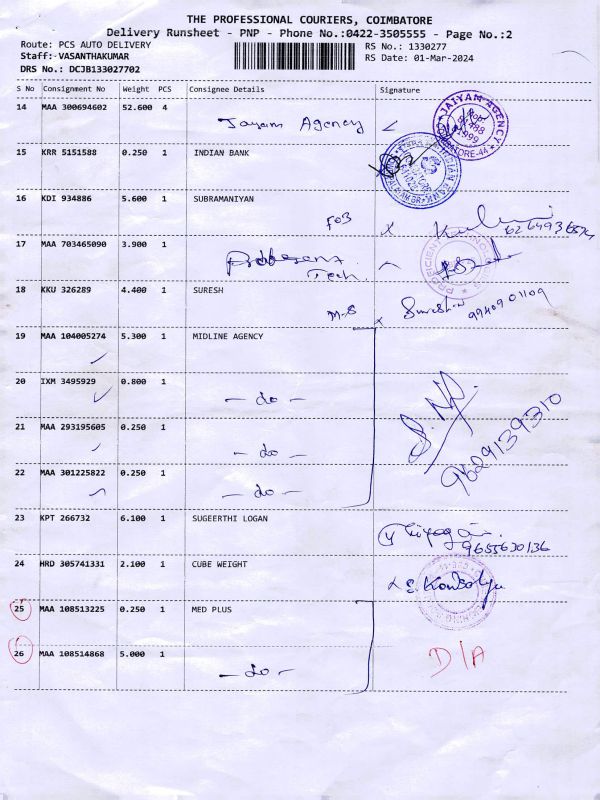 THE PROFESSIONAL COURIERS, COIMBATORE
Delivery Runsheet - PNP - Phone No.:0422-3505555 - Page No.:2
Route: PCS AUTO DELIVERY RS No.: 1330277
Staff: VASANTHAKUMAR RS Date: 01-Mar-2024
DRS No.: DCJB133027702
S No Consignment No Weight PCS Consignee Details Signature
14 MAA 300694602 52.600 4 Jayam Agency
JAIYAM AGENCY
15 KRR 5151588 0.250 1 INDIAN BANK
16 KDI 934886 5.600 1 SUBRAMANIYAN
17 MAA 703465090 3.900 1
Tech.
PROFICIENT
18 KKU 326289 4.400 1 SURESH
M-S Suresh 9940901109
19 MAA 104005274 5.300 1 MIDLINE AGENCY
20 IXM 3495929 0.800 1
- do -
21 MAA 293195605 0.250 1
- do -
22 MAA 301225822 0.250 1
- do -
9629139310
23 KPT 266732 6.100 1 SUGEERTHI LOGAN
9655630136
24 HRD 305741331 2.100 1 CUBE WEIGHT
25 MAA 108513225 0.250 1 MED PLUS
26 MAA 108514868 5.000 1
- do -
D/A